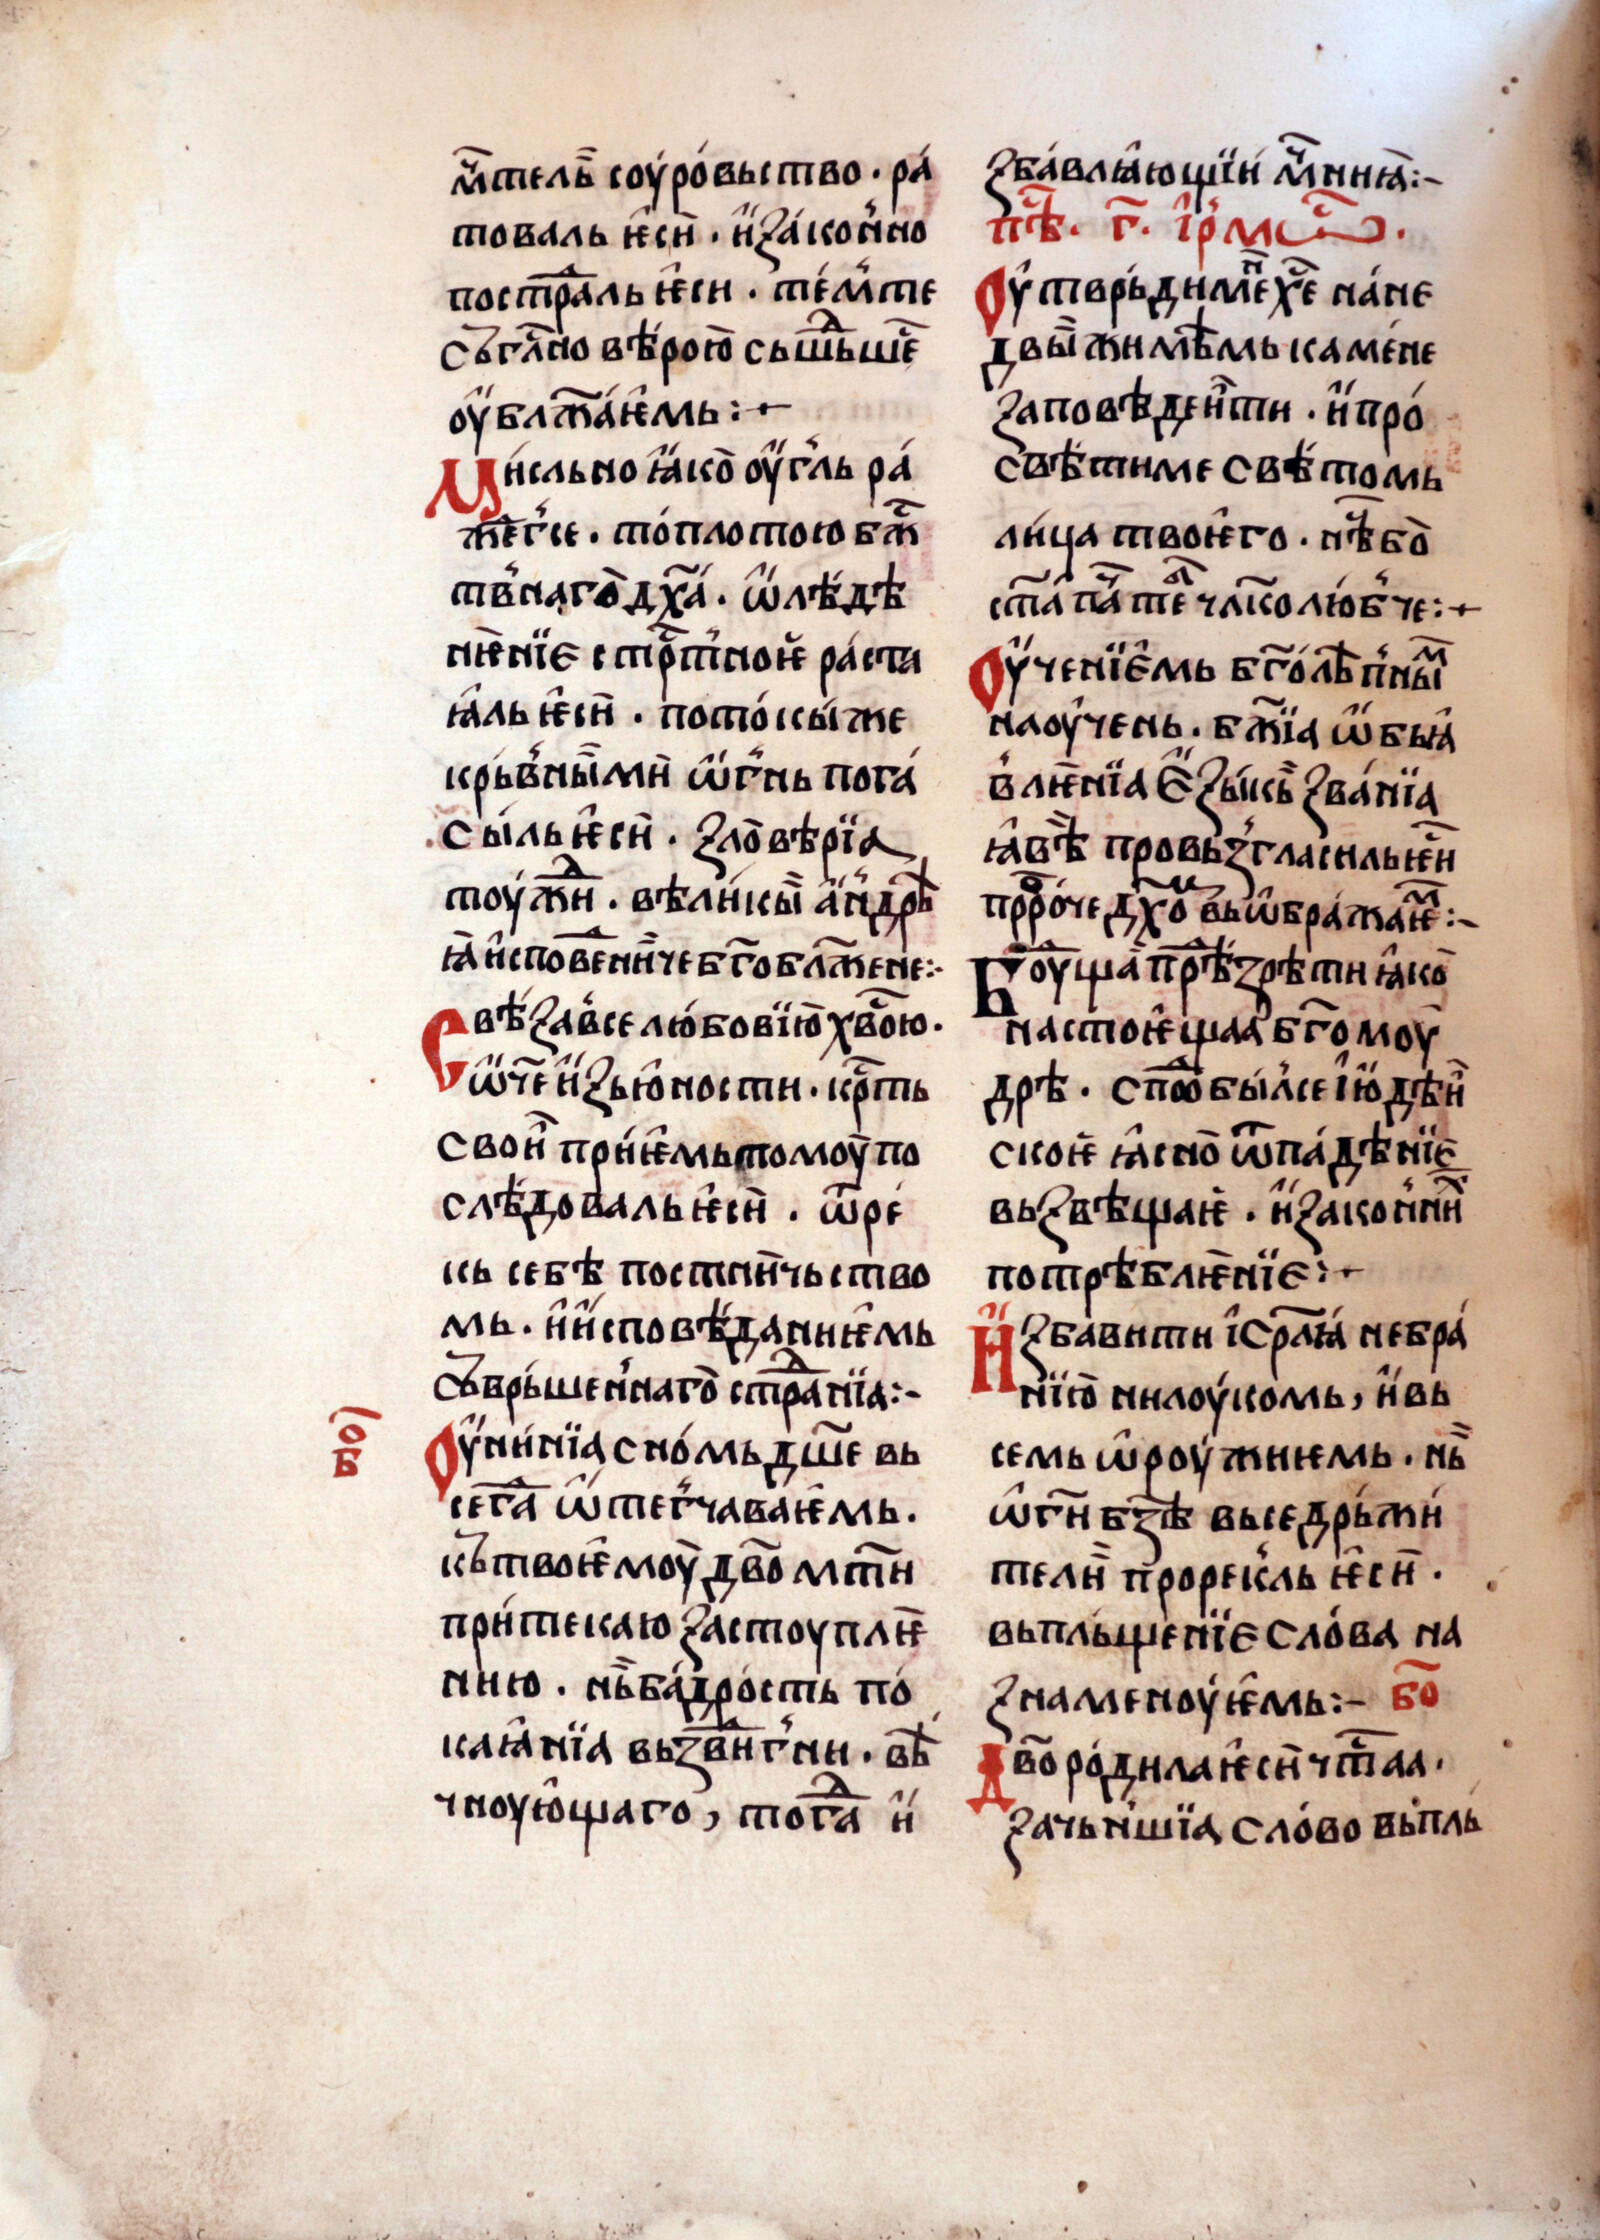 мⷱ҇тель̏ соуро́вьство · ра́
товаль ѥ҆си̏ · и҆ зако́нно
постра́дль ѥ҆си · те́мⷤте
съгла́сно вѣ́рою съше́дьше
оу҆блажа́ѥмь :~
Ци́сльно ꙗ҆ко̀ оу҆́гль ра́
жег'се · то́плотою бж҃
тв'наго̀ дх҃а́ · ѡ҆ лѣ́дѣ
нѥ̏нїе стрⷭ҇тное̏ ра́ста
ꙗ҆ль ѥ҆си̏ · пото́кы́ же
кръв'ны́ми̏ ѡ҆́гнь пога́
сы́ль ѥ҆си̏ · ꙁло̀вѣ́рїа
тоу́жди · вѣли́кы̏ а҆н'дрѣ́
ꙗ̏ и҆сповѣⷣниче бг҃обл҃жене :~
Свѣ́ꙁа́в'се лю́бовїю̏ хв҃ою ·
ѡ҆́тч҃е и҆ꙁь ю҆ности · крⷭ҇ть
свои̏ при́ѥмь томоу̀ по
слѣ́доваль ѥ҆си̏ · ѿре́
кь себѣ постни́чьство
мь · и҆ и҆сповѣ́даниѥ҆мь
съврьшен'наго̀ стра́данїа :~
об
Оу҆ни́нїа сно́мь дш҃е вь
сегⷣа ѡ҆тег'чаваѥ҆мь ·
къ твоѥ҆моу̀ дв҃о мⷭ҇ти
при́текаю ꙁастоуплѥ̏
нию · нь̏ ба́дро́сть по́
каꙗ҆нїа вьꙁдвигни · вѣ́
чноую҆щаго , тогⷣа и҆
ꙁба́влꙗ́ющїи мⷱ҇ниꙗ̏ :~
пѣⷭ҇ · г҃ · і҆рмѡⷭ҇ ·
Оу҆тврьди ме̏ хе҃ на́ не
двы̏жи́мѣмь ка́ме́не
ꙁаповѣ́деи̏ ти · и҆ про́
свѣ́ти ме свѣ́томь
ли́ца твоѥ҆го · нѣⷭ҇ бо̀
ст҃а па́че те чл҃колю́бче :~
Оу҆ченїе҆мь бг҃олѣ́пныⷨ
наоу҆чень · бж҃їа ѡ҆бьꙗ́
в'лѥ̏нїа е҆ꙁы́кь̏ ꙁва́нїа
ꙗ҆вѣ̏ провьꙁгласиль ѥ҆си
прⷪ҇ро́че дх҃оⷨ вьѡбражаѥⷨ :~
Боуⷣща́а прѣ́ꙁрѣ́ти ꙗ҆ко̀
настоѥ҆щаа̏ бг҃омоу̀
дрѣ · сподо́бы́л'се і҆ю҆дѣи̏
скоѥ̏ ꙗ҆сно̀ ѿпа́дѣнїе
вьꙁвѣ́щаѥ̏ · и҆ ꙁако́н'ниⷯ
потрѣ́блѥ̏нїе :~
И҆ꙁбавити і҆сра҃лꙗ̏ не бра́
нїю̏ ни лоу́комь , и҆ вь
семь ѡ҆роу́жиѥмь · нь̏
ѡ҆ гⷭ҇и бꙁ҃ѣ вьседрьжи́
тели̏ прорек'ль ѥ҆си̏ ·
вьпльще́нїе сло́ва на
ꙁнамено́уѥ҆мь :~ бо҃
Дв҃о ро́дила ѥ҆си̏ чⷭ҇таа ·
ꙁачьн'шїа сло́во вьпль